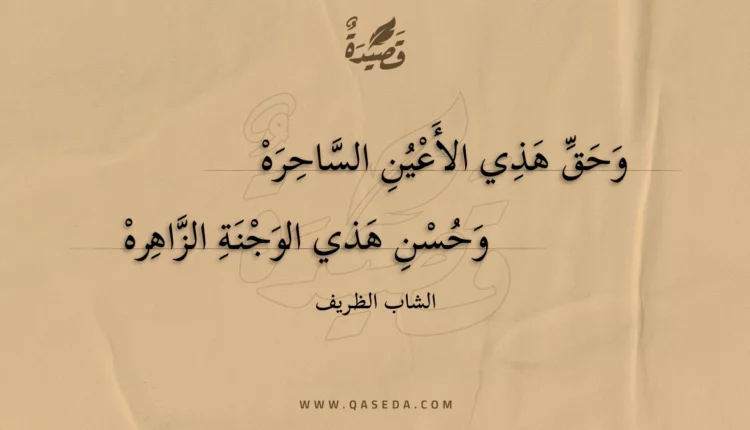 قَصِيدَةٌ
وَحَقِّ هَذِي الأَعْيُنِ السَّاحِرَهْ
وَحُسْنِ هَذي الوَجْنَةِ الزَّاهِرهْ
الشاب الظريف
WWW.QASEDA.COM